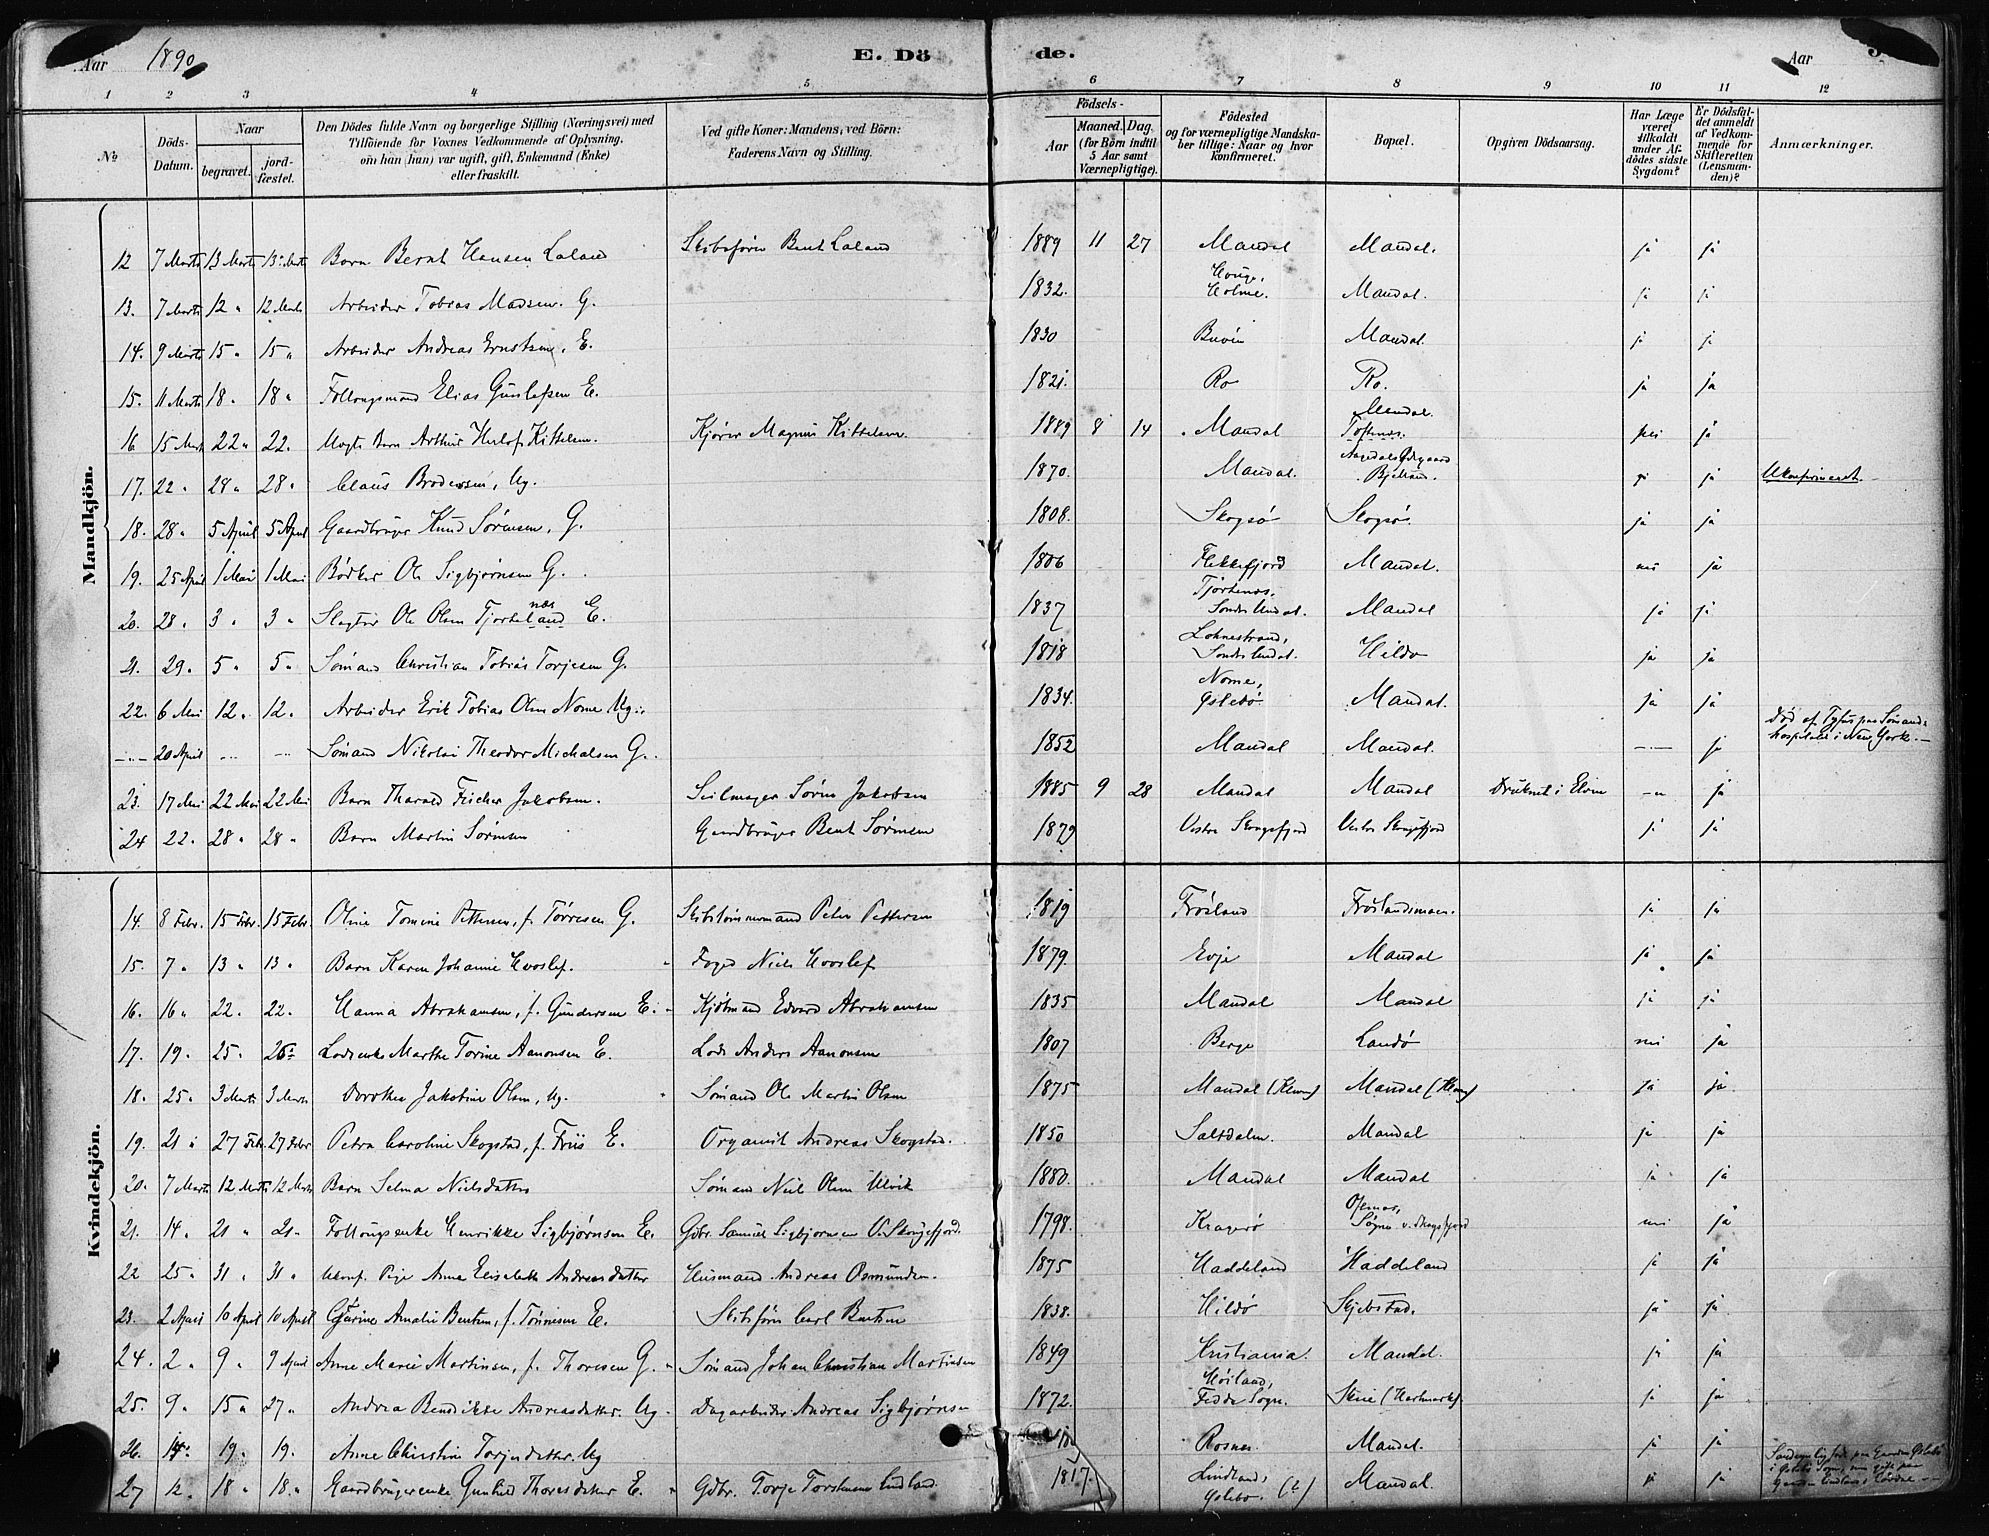 Aar 1890 E. Dö de. Aar
1 2 3 4 5 6 7 8 9 10 11 12
No Döds-Datum. Naar begravet. jord-fæstet. Den Dödes fulde Navn og borgerlige Stilling (Næringsvei) med Tilföiende for Voxnes Vedkommende af Oplysning, om han (hun) var ugift, gift, Enkemand (Enke) eller fraskilt. Ved gifte Koner: Mandens, ved Börn: Faderens Navn og Stilling. Födsels- Aar Maaned. Dag. (for Börn indtil 5 Aar samt Værnepligtige). Födested og for værnepligtige Mandskaber tillige: Naar og hvor konfirmeret. Bopæl. Opgiven Dödsaarsag. Har Læge været tilkaldt under Afdödes sidste Sygdom? Er Dödsfaldet anmeldt af Vedkommende for Skifteretten (Lensmanden)? Anmærkninger.
Mandkjön.
12 7 Marts 13 Marts 13 Marts Barn Bernt Hansen Laland Skibsfører Bent Laland 1889 11 27 Mandal Mandal. ja ja
13. 7 Marts 12 " 12 Marts Arbeider Tobias Madsen. G. 1832. Holme. Mandal. ja ja
14. 9 Marts 15 " 15 " Arbeider Andreas Ernstsen, E. 1830 Mandal. ja ja
15. 11 Marts 18 " 18 " Føllougsmand Elias Gunlefsen E. 1821. Ro Ro. ja ja
16. 15 Mart 22 " 22. Barn Arthur Kittelsen. Magnus Kittelsen. 1889 8 14 Mandal Mandal. ja
17. 22 " 28 " 28 " Claus Brodersen, Ug. 1870. Mandal. ja Ukonfirmeret.
18. 28 " 5 April 5 April Gaardbruger Knud Sørensen, G. 1808. Skogsø Skogsø. ja ja
19. 25 April 1 Mai 1 Mai Bødker Ole Sigbjørnsen G. 1806 Flekkefjord Mandal. nei ja
20. 28 " 3 " 3 " Slagter Ole Olsen Tjorteland næs E. 1837 Tjortenæs, Søndre Undal. Mandal ja ja
21. 29 " 5 " 5 " Sømand Christian Tobias Torjesen G. 1818 Lohnestrand, Søndre Undal. Hildø ja ja
22. 6 Mai 12 " 12. Arbeider Erik Tobias Olsen Nome Ug. 1834. Nome, Øslebø Mandal. ja ja
20 April Sømand Nikolai Theodor Michalsen G. 1852 Mandal Mandal. ja Død af Tyfus paa Sømands hospitalet i New York.
23. 17 Mai 22 Mai 22 Mai Barn Tharald Fischer Jakobsen. Seilmager Søren Jakobsen 1885 9 28 Mandal Mandal Druknet i Elven ja
24 22. 28 " 28 " Barn Martin Sørensen Gaardbruger Bent Sørensen 1879 Vestre Skogsfjord Vestre Skogsfjord ja ja
Kvindekjön.
14. 8 Febr. 15 Febr. 15 Febr. Oline Tomine Pettersen, f. Tørresen G. Skibstømmermand Peter Pettersen 1819 Frøsland Frøslandsmoen. ja ja
15. 7 " 13 " 13 " Barn Karen Johanne Hvoslef. Foged Niels Hvoslef 1879. Evje Mandal ja ja
16. 16 " 22. 22. Hanna Abrahamsen, f. Gundersen E. Kjøbmand Edvard Abrahamsen 1835 Mandal Mandal ja ja
17. 19. 25. 26. Lodsenke Marthe Torine Aanonsen E. Lods Anders Aanonsen 1807 Berge Landø nei ja
18. 25. 3 Marts 3 Marts Dorothea Jakobine Olsen, Ug. Sømand Ole Martin Olsen 1875 Mandal (Kleven) Mandal (Kleven) ja ja
19. 21 " 27 Febr. 27 Febr Petra Caroline Skogstad, f. Friis E. Organist Andreas Skogstad. 1850 Saltdalen. Mandal ja ja
20. 7 Marts 12 Marts 12 Marts Barn Selma Nielsdatter Sømand Niels Olsen Ulvik 1880. Mandal Mandal ja ja
21. 14 " 21 " 21. Føllougsenke Henrikke Sigbjørnsen E. Gdbr. Samuel Sigbjørnsen V. Skogsfjord. 1798. Kragerø Søgne v. Skogsfjord nei ja
22 25 " 31 " 31 " Ukonf. Pige Anne Elisabeth Andreasdatter Husmand Andreas Osmundsen. 1875 Haddeland Haddeland ja ja
23. 2 April 10 April 10 April Amalie Bentsen, f. Tønnesen E. Skibsfører Carl Bentsen 1838. Hildø Skjebstad. ja ja
24. 2 " 9 " 9 April Anne Marie Martinsen, f. Thoresen G. Sømand Johan Christian Martinsen 1849 Kristiania. Mandal. ja ja
25. 9 " 15 " 27 " Andrea Bendikte Andreasdatter. Ug. Dagarbeider Andreas Sigbjørnsen 1872. Høiland, Fedde Sogn. Skeie (Hartmark). ja ja
26. 14. 19. 19. Anne Christine Torjesdatter. Ug Rosnes. Mandal. ja ja
27 12. 18 " 18 " Gaardbrugerenke Gunhild Thoresdatter E. Gdbr. Torje Torstensen Lindland. 1817. Lindland, Øslebø. (?) Mandal. ja ja